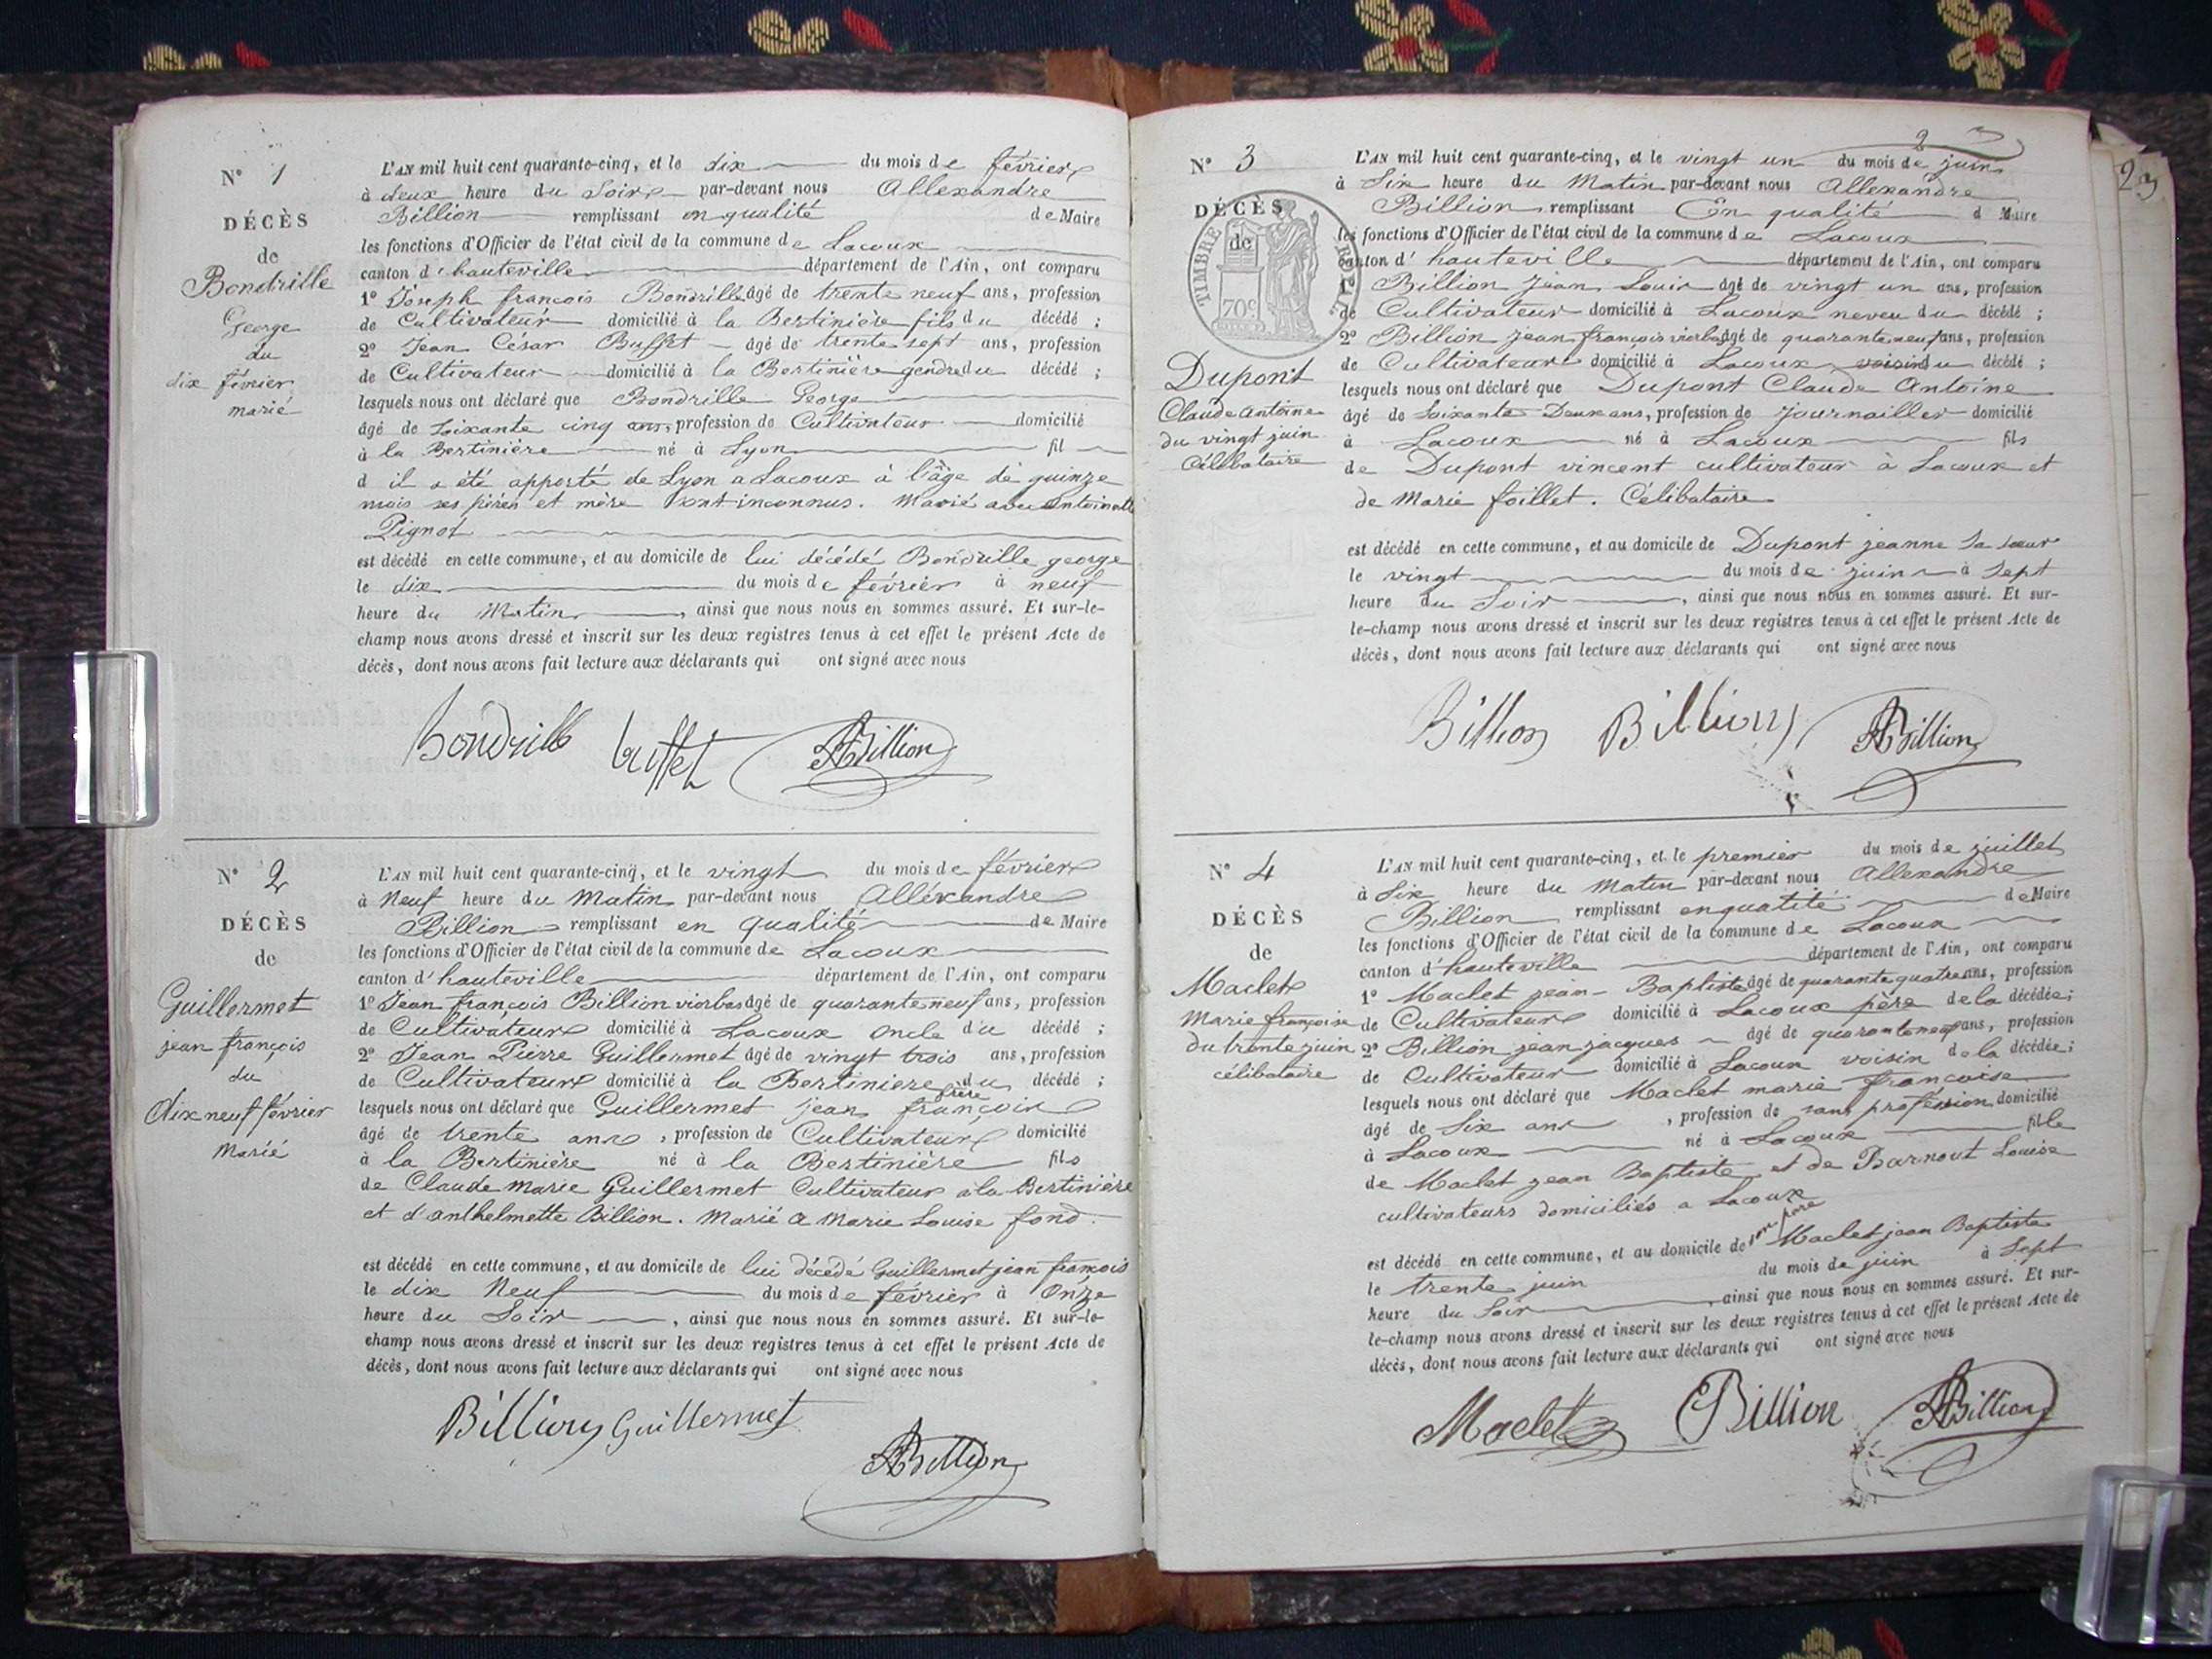 N° 1
DÉCÈS
de
Bondrille
George
du
dix février
marié
L'AN mil huit cent quarante-cinq, et le dix du mois de février
à deux heure du Soire par-devant nous Allexandre
Billion remplissant en qualité de Maire
les fonctions d'Officier de l'état civil de la commune de Lacoux
canton d'hauteville département de l'Ain, ont comparu
1° Joseph françois Bondrille âgé de trente neuf ans, profession
de Cultivateur domicilié à la Bertinière fils du décédé ;
2° Jean César Buffet âgé de trente sept ans, profession
de Cultivateur domicilié à la Bertinière gendre du décédé ;
lesquels nous ont déclaré que Bondrille George
âgé de soixante cinq ans, profession de Cultivateur domicilié
à la Bertinière né à Lyon fil
d il a été apporté de Lyon a Lacoux à l'âge de quinze
mois ses pères et mère sont inconnus. Marié avec antoinette
Pignot
est décédé en cette commune, et au domicile de lui décédé Bondrille george
le dix du mois de février à neuf
heure du Matin, ainsi que nous nous en sommes assuré. Et sur-le-
champ nous avons dressé et inscrit sur les deux registres tenus à cet effet le présent Acte de
décès, dont nous avons fait lecture aux déclarants qui ont signé avec nous
Bondrille buffet ABillion
N° 2
DÉCÈS
de
Guillermet
jean françois
du
dix neuf février
Marié
L'AN mil huit cent quarante-cinq, et le vingt du mois de février
à Neuf heure du Matin par-devant nous Alléxandre
Billion remplissant en qualité de Maire
les fonctions d'Officier de l'état civil de la commune de Lacoux
canton d'hauteville département de l'Ain, ont comparu
1° Jean françois Billion viorbas âgé de quarante neuf ans, profession
de Cultivateur domicilié à Lacoux oncle du décédé ;
2° Jean Pierre Guillermet âgé de vingt trois ans, profession
de Cultivateur domicilié à la Bertiniere frère du décédé ;
lesquels nous ont déclaré que Guillermet jean françois
âgé de trente ans, profession de Cultivateur domicilié
à la Bertinière né à la Bertinière fils
de Claude Marie Guillermet Cultivateur a la Bertinière
et d'anthelmette Billion. Marié a Marie Louise fond.
est décédé en cette commune, et au domicile de lui décédé Guillermet jean françois
le dix Neuf du mois de février à Onze
heure du Soir, ainsi que nous nous en sommes assuré. Et sur-le-
champ nous avons dressé et inscrit sur les deux registres tenus à cet effet le présent Acte de
décès, dont nous avons fait lecture aux déclarants qui ont signé avec nous
Billion Guillermet
ABillion
2
23
N° 3
DÉCÈS
de
TIMBRE ROYAL
70c
Dupont
Claude Antoine
du vingt juin
Célibataire
L'AN mil huit cent quarante-cinq, et le vingt un du mois de juin
à Six heure du Matin par-devant nous Allexandre
Billion remplissant En qualité d Maire
les fonctions d'Officier de l'état civil de la commune de Lacoux
canton d'hauteville département de l'Ain, ont comparu
1° Billion Jean Louis âgé de vingt un ans, profession
de Cultivateur domicilié à Lacoux neveu du décédé ;
2° Billion jean françois viorbas âgé de quarante neuf ans, profession
de Cultivateur domicilié à Lacoux voisin du décédé ;
lesquels nous ont déclaré que Dupont Claude Antoine
âgé de Soixante Deux ans, profession de journailler domicilié
à Lacoux né à Lacoux fils
de Dupont vincent cultivateur à Lacoux et
de Marie foillet. Célibataire
est décédé en cette commune, et au domicile de Dupont jeanne Sa sœur
le vingt du mois de juin à Sept
heure du Soir, ainsi que nous nous en sommes assuré. Et sur-
le-champ nous avons dressé et inscrit sur les deux registres tenus à cet effet le présent Acte de
décès, dont nous avons fait lecture aux déclarants qui ont signé avec nous
Billion Billion ABillion
N° 4
DÉCÈS
de
Maclet
Marie françoise
du trente juin
célibataire
L'AN mil huit cent quarante-cinq, et le premier du mois de juillet
à Six heure du Matin par-devant nous Allexandre
Billion remplissant en qualité de Maire
les fonctions d'Officier de l'état civil de la commune de Lacoux
canton d'hauteville département de l'Ain, ont comparu
1° Maclet jean-Baptiste âgé de quarante quatre ans, profession
de Cultivateur domicilié à Lacoux père de la décédée ;
2° Billion jean jacques âgé de quarante neuf ans, profession
de Cultivateur domicilié à Lacoux voisin de la décédée ;
lesquels nous ont déclaré que Maclet marie françoise
âgé de Six ans, profession de sans profession domicilié
à Lacoux né à Lacoux fille
de Maclet jean Baptiste et de Barnout Louise
cultivateurs domiciliés a Lacoux
est décédé en cette commune, et au domicile de son père Maclet jean Baptiste
le trente juin du mois de juin à Sept
heure du Soir, ainsi que nous nous en sommes assuré. Et sur-
le-champ nous avons dressé et inscrit sur les deux registres tenus à cet effet le présent Acte de
décès, dont nous avons fait lecture aux déclarants qui ont signé avec nous
Maclet Billion ABillion